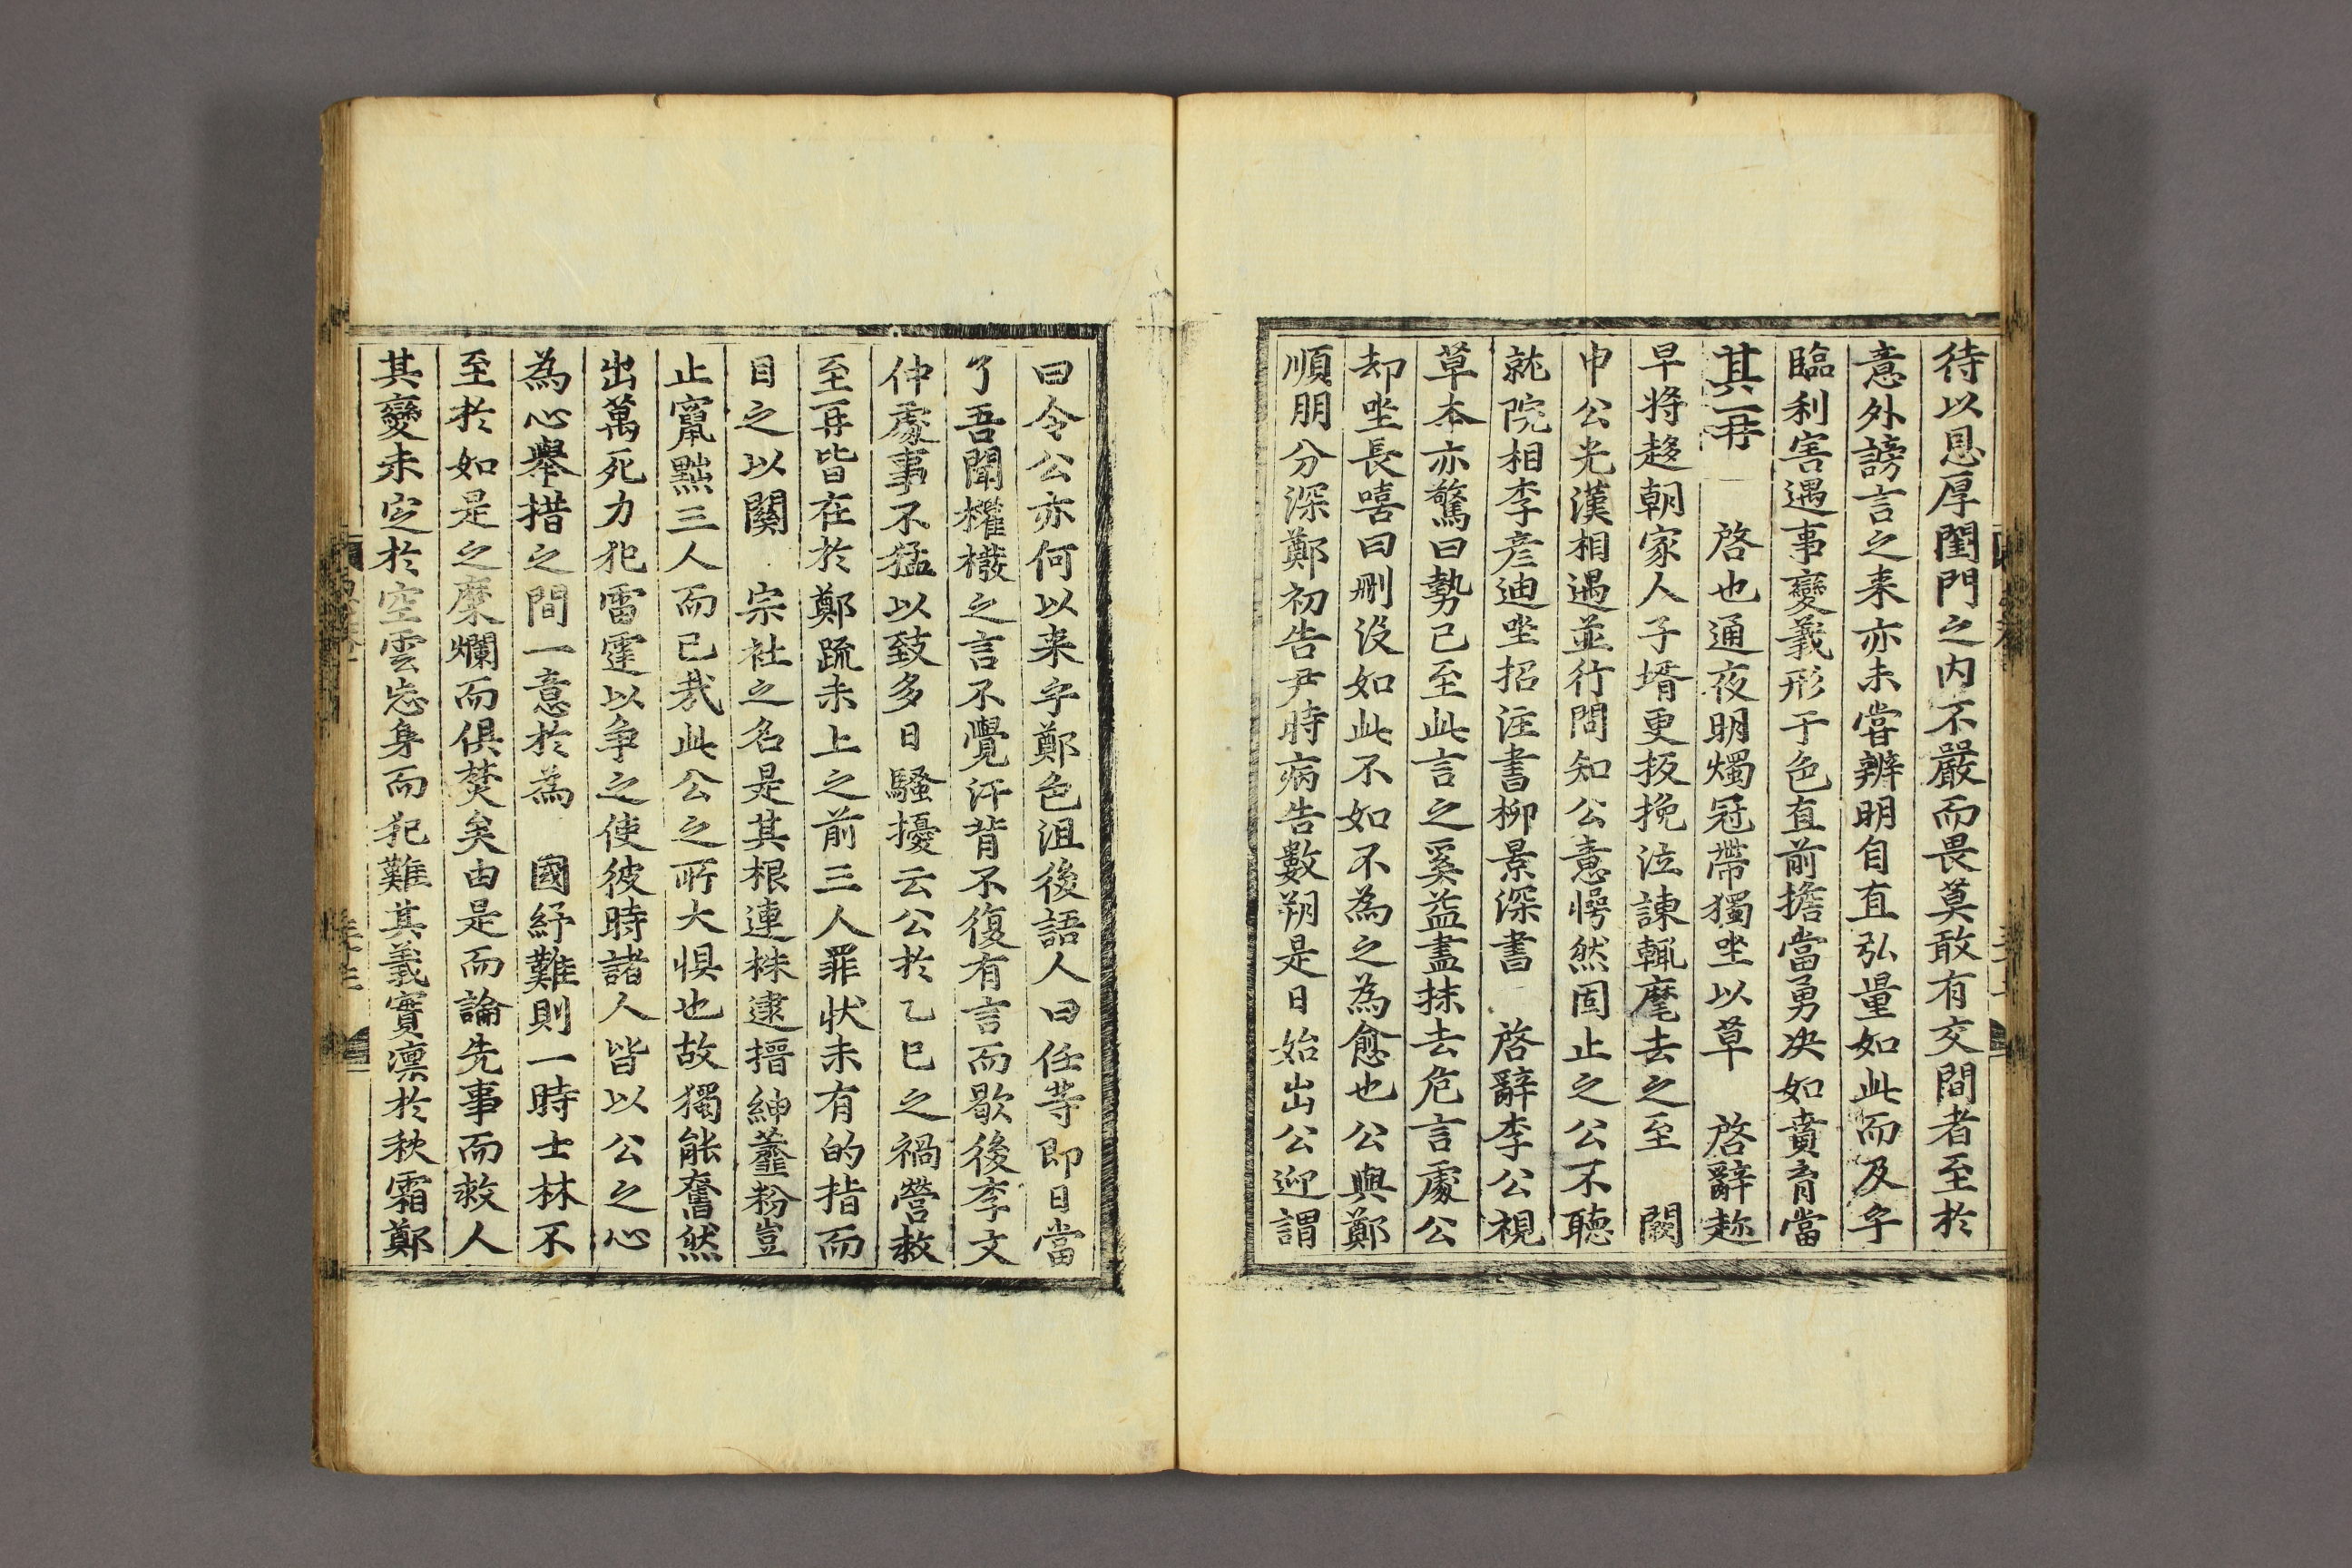 待以恩厚閨門之内不嚴而畏莫敢有交閒者至於
意外謗言之来亦未甞辨明自直弘量如此而及乎
臨利害遇事變義形于色直前擔當勇决如賁育當
其再 啓也通夜明燭冠帶獨坐以草 啓辭趂
早將趍朝家人子壻更扳挽泣諫輒麾去之至 闕
申公光漢相遇並行問知公意愕然固止之公不聽
就院相李彦迪坐招注書柳景深書 啓辭李公視
草本亦驚曰勢已至此言之奚益盡抹去危言處公
却坐長嘻曰刪沒如此不如不為之為愈也公與鄭
順朋分深鄭初告尹時病告數朔是日始出公迎謂
曰令公亦何以来乎鄭色沮後語人曰任等即日當
了吾聞權橃之言不覺汗背不復有言而歇後李文
仲處事不猛以致多日騷擾云公於乙巳之禍營救
至再皆在於鄭疏未上之前三人罪状未有的指而
目之以關 宗社之名是其根連株逮搢紳虀粉豈
止竄黜三人而已㦲此公之所大惧也故獨能奮然
出萬死力犯雷霆以争之使彼時諸人皆以公之心
為心舉措之間一意於為 國紓難則一時士林不
至於如是之糜爛而俱焚矣由是而論先事而救人
其變未定於空雲忘身而犯難其義實凛於秋霜鄭